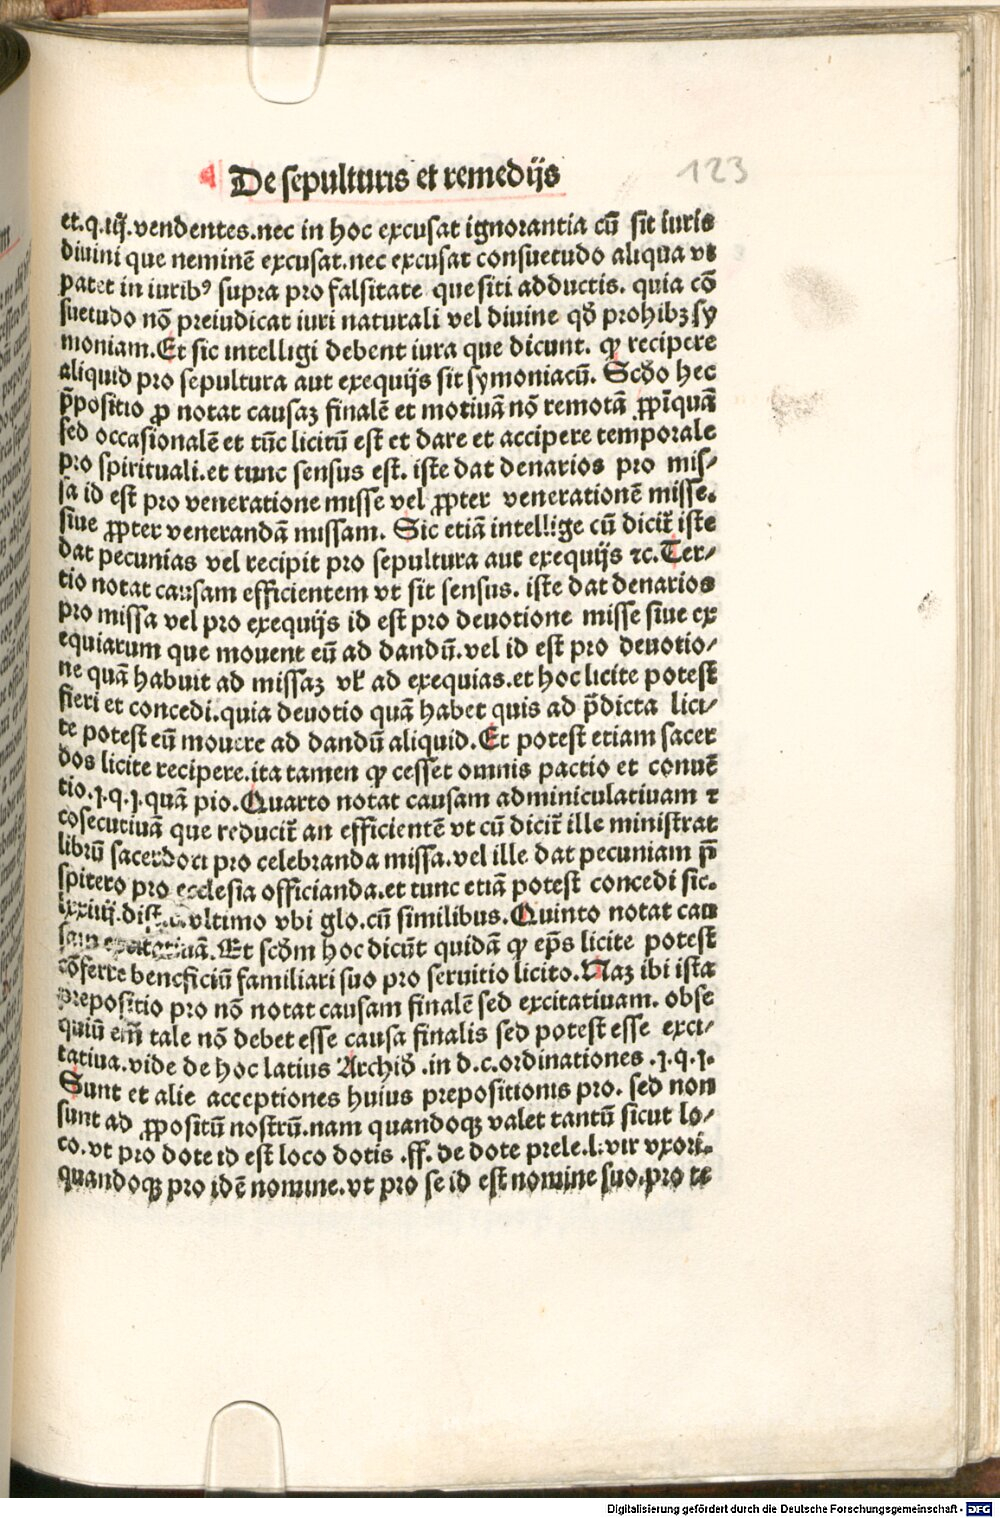 De sepulturis et remedijs
123
et.q.iij.vendentes.nec in hoc excusat ignorantia cū sit iuris
diuini que neminē excusat.nec excusat consuetudo aliqua vt
patet in iuribꝰ supra pro falsitate que siti adductis. quia cō
suetudo nō preiudicat iuri naturali vel diuine qð prohibꝫ sy
moniam.Et sic intelligi debent iura que dicunt. ꝙ recipere
aliquid pro sepultura aut exequijs sit symoniacū. Scðo hec
p̄positio ꝓ notat causaꝫ finalē et motiuā nō remotā ꝓpīquā
sed occasionalē et tūc licitū est et dare et accipere temporale
pro spirituali.et tunc sensus est. iste dat denarios pro mis/
sa id est pro veneratione misse vel ꝓpter venerationē misse.
siue ꝓpter venerandā missam. Sic etiā intellige cū dicit̄ iste
dat pecunias vel recipit pro sepultura aut exequijs ⁊c.Ter/
tio notat causam efficientem vt sit sensus. iste dat denarios
pro missa vel pro exequijs id est pro deuotione misse siue ex
equiarum que mouent eū ad dandū.vel id est pro deuotio/
ne quā habuit ad missaꝫ vƚ ad exequias.et hoc licite potest
fieri et concedi.quia deuotio quā habet quis ad p̄dicta lici/
te potest eū mouere ad dandū aliquid.Et potest etiam sacer
dos licite recipere.ita tamen ꝙ cesset omnis pactio et conuē
tio.j.q.j.quā pio.Quarto notat causam adminiculatiuam ⁊
cosecutiuā que reducit̄ an efficientē vt cū dicit̄ ille ministrat
librū sacerdoti pro celebranda missa.vel ille dat pecuniam p̄
spitero pro ecclesia officianda.et tunc etiā potest concedi sic.
lxxiiij.dist. vltimo vbi glo.cū similibus.Quinto notat cau
sam excitatiuā.Et scðm hoc dicūt quidā ꝙ ep̄s licite potest
cōferre beneficiū familiari suo pro seruitio licito.Naꝫ ibi ista
prepositio pro nō notat causam finalē sed excitatiuam. obse
quiū em̄ tale nō debet esse causa finalis sed potest esse exci/
tatiua.vide de hoc latius Archið .in d.c.ordinationes .j.q.j.
Sunt et alie acceptiones huius prepositionis pro. sed non
sunt ad ꝓpositū nostrū.nam quandoqꝫ valet tantū sicut lo/
co.vt pro dote id est loco dotis .ff. de dote prele.l.vir vxori.
quandoqꝫ pro idē nomine.vt pro se id est nomine suo.pro te
Digitalisierung gefördert durch die Deutsche Forschungsgemeinschaft - DFG